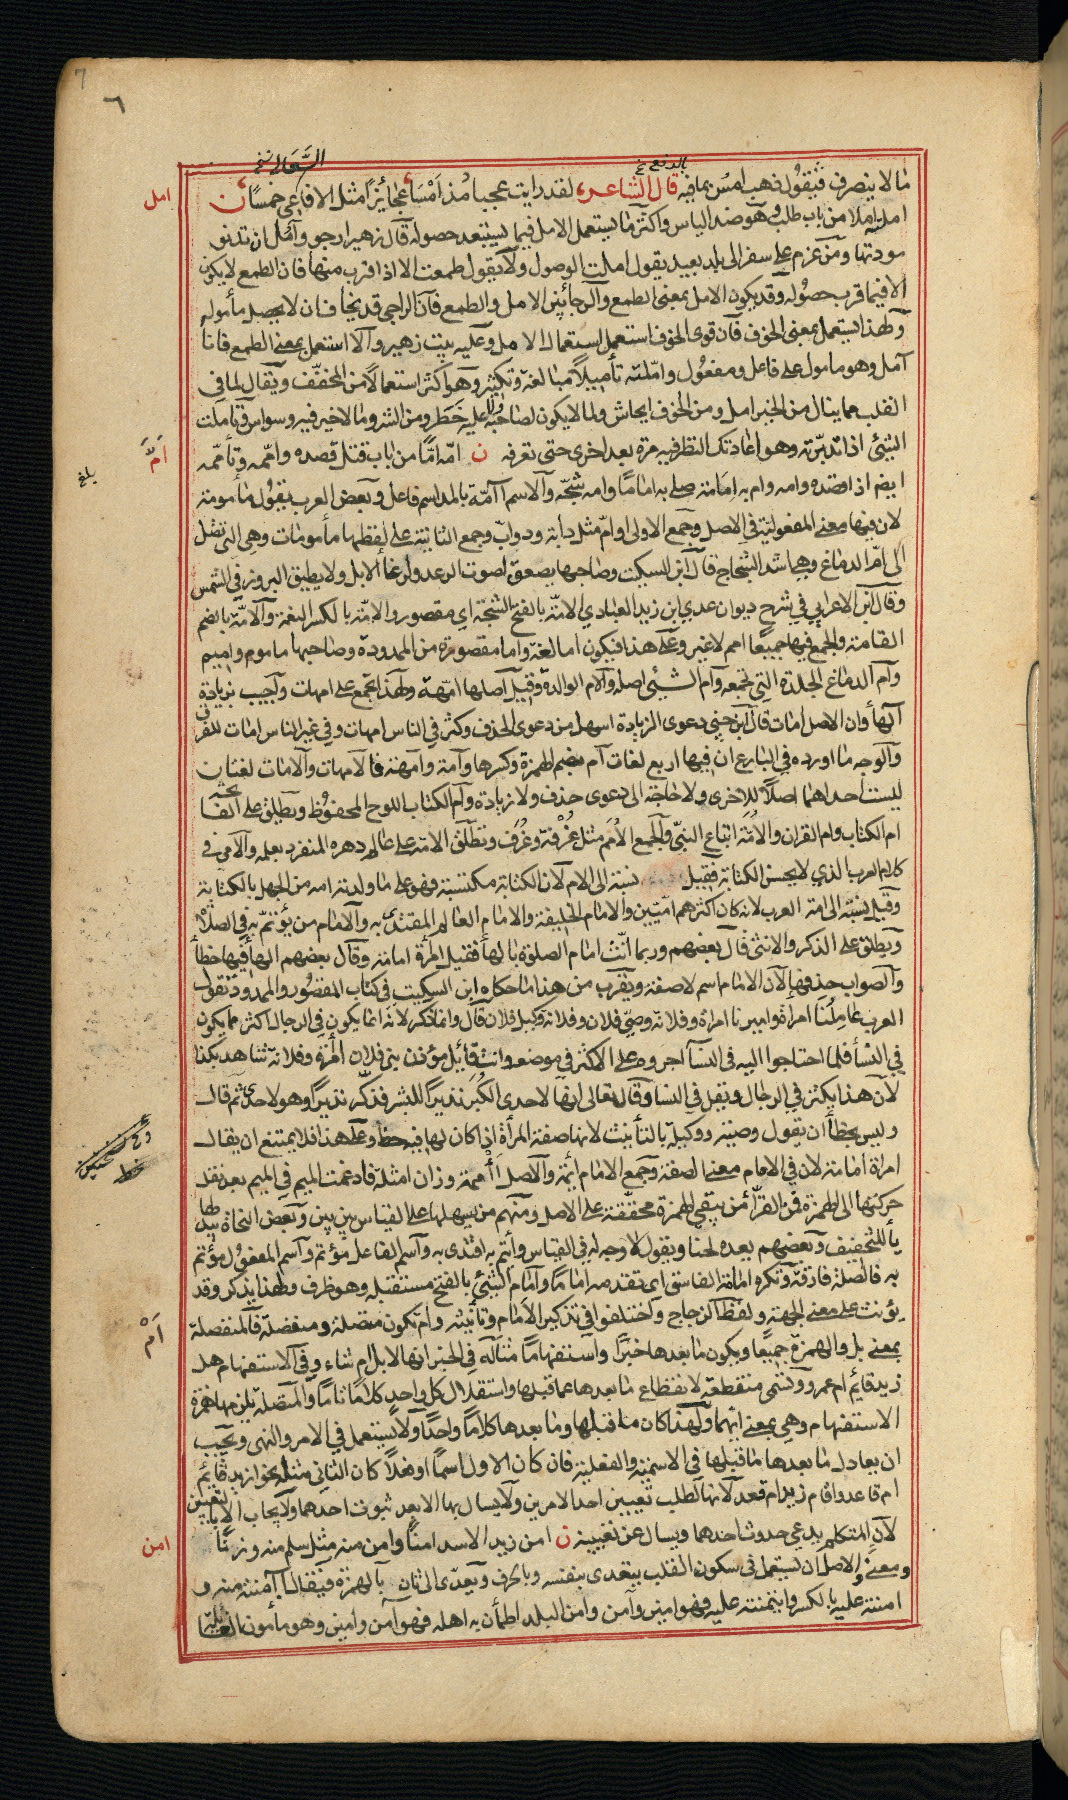 7
٦
بالرفع نسخ
السعالى نسخ
ما لا ينصرف فيقول ذهب امس بما فيه قال الشاعر لقد رايت عجبا مذ امسا عجائزا مثل الافاعي خمسا ن
امل
املته املا من باب طلب وهو ضد الياس واكثر ما يستعمل الامل فيما يستبعد حصوله قال زهير ارجو وآمل ان تدنو
مودتها ومن عزم على سفر الى بلد بعيد يقول املت الوصول ولا يقول طمعت الا اذا قرب منها فان الطمع لا يكون
الا فيما قرب حصوله وقد يكون الامل بمعنى الطمع والرجا بين الامل والطمع فان الراجي قد يخاف ان لا يحصل مأموله
ولهذا يستعمل بمعنى الخوف فان قوي الخوف استعمل استعمال الامل وعليه بيت زهير والا استعمل بمعنى الطمع فانا
آمل وهو مامول على فاعل ومفعول واملته تأميلا مبالغة وتكثير وهو اكثر استعمالا من المخفف ويقال لما في
القلب مما ينال من الخير امل ومن الخوف ايحاش ولما لا يكون لصاحبه ولا عليه خطر ومن الشر وما لا خير فيه وسواس وتأملت
الشئ اذا تدبرته وهو اعادتك النظر فيه مرة بعد اخرى حتى تعرفه ن امه اما من باب قتل قصده واممه وتأممه
امَّ
بلغ
ايضا اذا قصده وامه وام به امامة صلى به اماما وامه شجه والاسم آمة بالمد اسم فاعل وبعض العرب يقول مأمومة
لان فيها معنى المفعولية في الاصل وجمع الاولى اوام مثل دابة ودواب وجمع الثانية على لفظها مأمومات وهي التي تصل
الى ام الدماغ وهي اشد الشجاج قال ابن السكيت وصاحبها يصعق لصوت الرعد ولرغا الابل ولا يطيق البروز في الشمس
وقال ابن الاعرابي في شرح ديوان عدي ابن زيد العبادي الامة بالفتح الشجة اي مقصور والامة بالكسر النعمة والامة بالضم
القامة والجمع فيها جميعا امم لا غير وعلى هذا فيكون اما لغة واما مقصورة من الممدودة وصاحبها ماموم واميم
وام الدماغ الجلدة التي تجمعه وام الشئ اصله والام الوالدة وقيل اصلها امهة ولهذا تجمع على امهات واجيب بزيادة
الها وان الاصل امات قال ابن جني دعوى الزيادة اسهل من دعوى الحذف وكثر في الناس امهات وفي غير الناس امات للفرق
والوجه ما اورده في البارع ان فيها اربع لغات ام بضم الهمزة وكسرها وامة وامهة فالامهات والامات لغتان
ليست احداهما اصلا للاخرى ولا حاجة الى دعوى حذف ولا زيادة وام الكتاب اللوح المحفوظ ويطلق على الفاتحة
ام الكتاب وام القران والامة اتباع النبي والجمع الامم مثل غرفة وغرف وتطلق الامة على عالم دهره المنفرد بعلمه والامي في
كلام العرب الذي لا يحسن الكتابة فقيل نسبة الى الام لان الكتابة مكتسبة فهو على ما ولدته امه من الجهل بالكتابة
وقيل نسبة الى امة العرب لانه كان اكثرهم اميين والامام الخليفة والامام العالم المقتدى به والامام من يؤتم به في الصلاة
ويطلق على الذكر والانثى قال بعضهم وربما انث امام الصلوة بالها فقيل امرأة امامة وقال بعضهم الها فيها خطأ
والصواب حذفها لان الامام اسم لا صفة ويقرب من هذا ما حكاه ابن السكيت في كتاب المقصور والممدود تقول
العرب عاملنا امراة واميرنا امراة وفلانة وصي فلان وفلانة وكيل فلان قال وانما ذكر لانه انما يكون في الرجال اكثر مما يكون
في النسا فلما احتاجوا اليه في النسا اجروه على الاكثر في موضعه وانت قائل مؤذن بني فلان امرأة وفلانة شاهد بكذا
لان هذا يكثر في الرجال ويقل في النسا وقال تعالى انها لاحدى الكبر نذيرا للبشر فذكر نذيرا وهو لاحدى ثم قال
وليس بخطأ ان تقول وصية ووكيلة بالتأنيث لانها صفة المرأة اذا كان لها فيه حظ وعلى هذا فلا يمتنع ان يقال
امراة امامة لان في الامام معنى الصفة وجمع الامام ائمة والاصل أأممة وزان امثلة فادغمت الميم في الميم بعد نقل
حركتها الى الهمزة فمن القرا من يبقي الهمزة محققة على الاصل ومنهم من يسهلها على القياس بين بين وبعض النحاة يبدلها
يأ للتخفيف وبعضهم يعده لحنا ويقول لا وجه له في القياس وأتم به اقتدى به واسم الفاعل مؤتم واسم المفعول مؤتم
به فالصلة فارقة وتكره امامة الفاسق اي تقدمه اماما وامام الشئ بالفتح مستقبله وهو ظرف ولهذا يذكر وقد
يؤنث على معنى الجهة ولفظ الزجاج واختلفوا في تذكير الامام وتأنيثه وام تكون متصلة ومنفصلة فالمنفصلة
اَمْ
بمعنى بل والهمزة جميعا ويكون ما بعدها خبرا واستفهاما مثاله في الخبر انها لابل ام شاء وفي الاستفهام هل
زيد قايم ام عمرو وتسمى منقطعة لانقطاع ما بعدها عما قبلها واستقلال كل واحد كلاما تاما والمتصلة يلزمها همزة
الاستفهام وهي بمعنى ايهما ولهذا كان ما قبلها وما بعدها كلاما واحدا ولا يستعمل في الامر والنهي ويجب
ان يعادل ما بعدها ما قبلها في الاسمية والفعلية فان كان الاول اسما او فعلا كان الثاني مثله نحو ازيد قائم
ام قاعد واقام زيد ام قعد لانها لطلب تعيين احد الامرين ولا يسال بها الا بعد ثبوت احدهما ولا يجاب الا بالتعيين
لان المتكلم يدعي حدوث احدهما ويسال عن تعيينه ن امن زيد الاسد امنا وامن منه مثل سلم منه وزنا
امن
ومعنى والاصل ان يستعمل في سكون القلب يتعدى بنفسه وبالحرف ويعدى الى ثان بالهمزة فيقال آمنته منه و
امنته عليه بالكسر وائتمنته عليه فهو امين وآمن وامن البلد اطمأن به اهله فهو آمن وامين وهو مأمون الغائلة